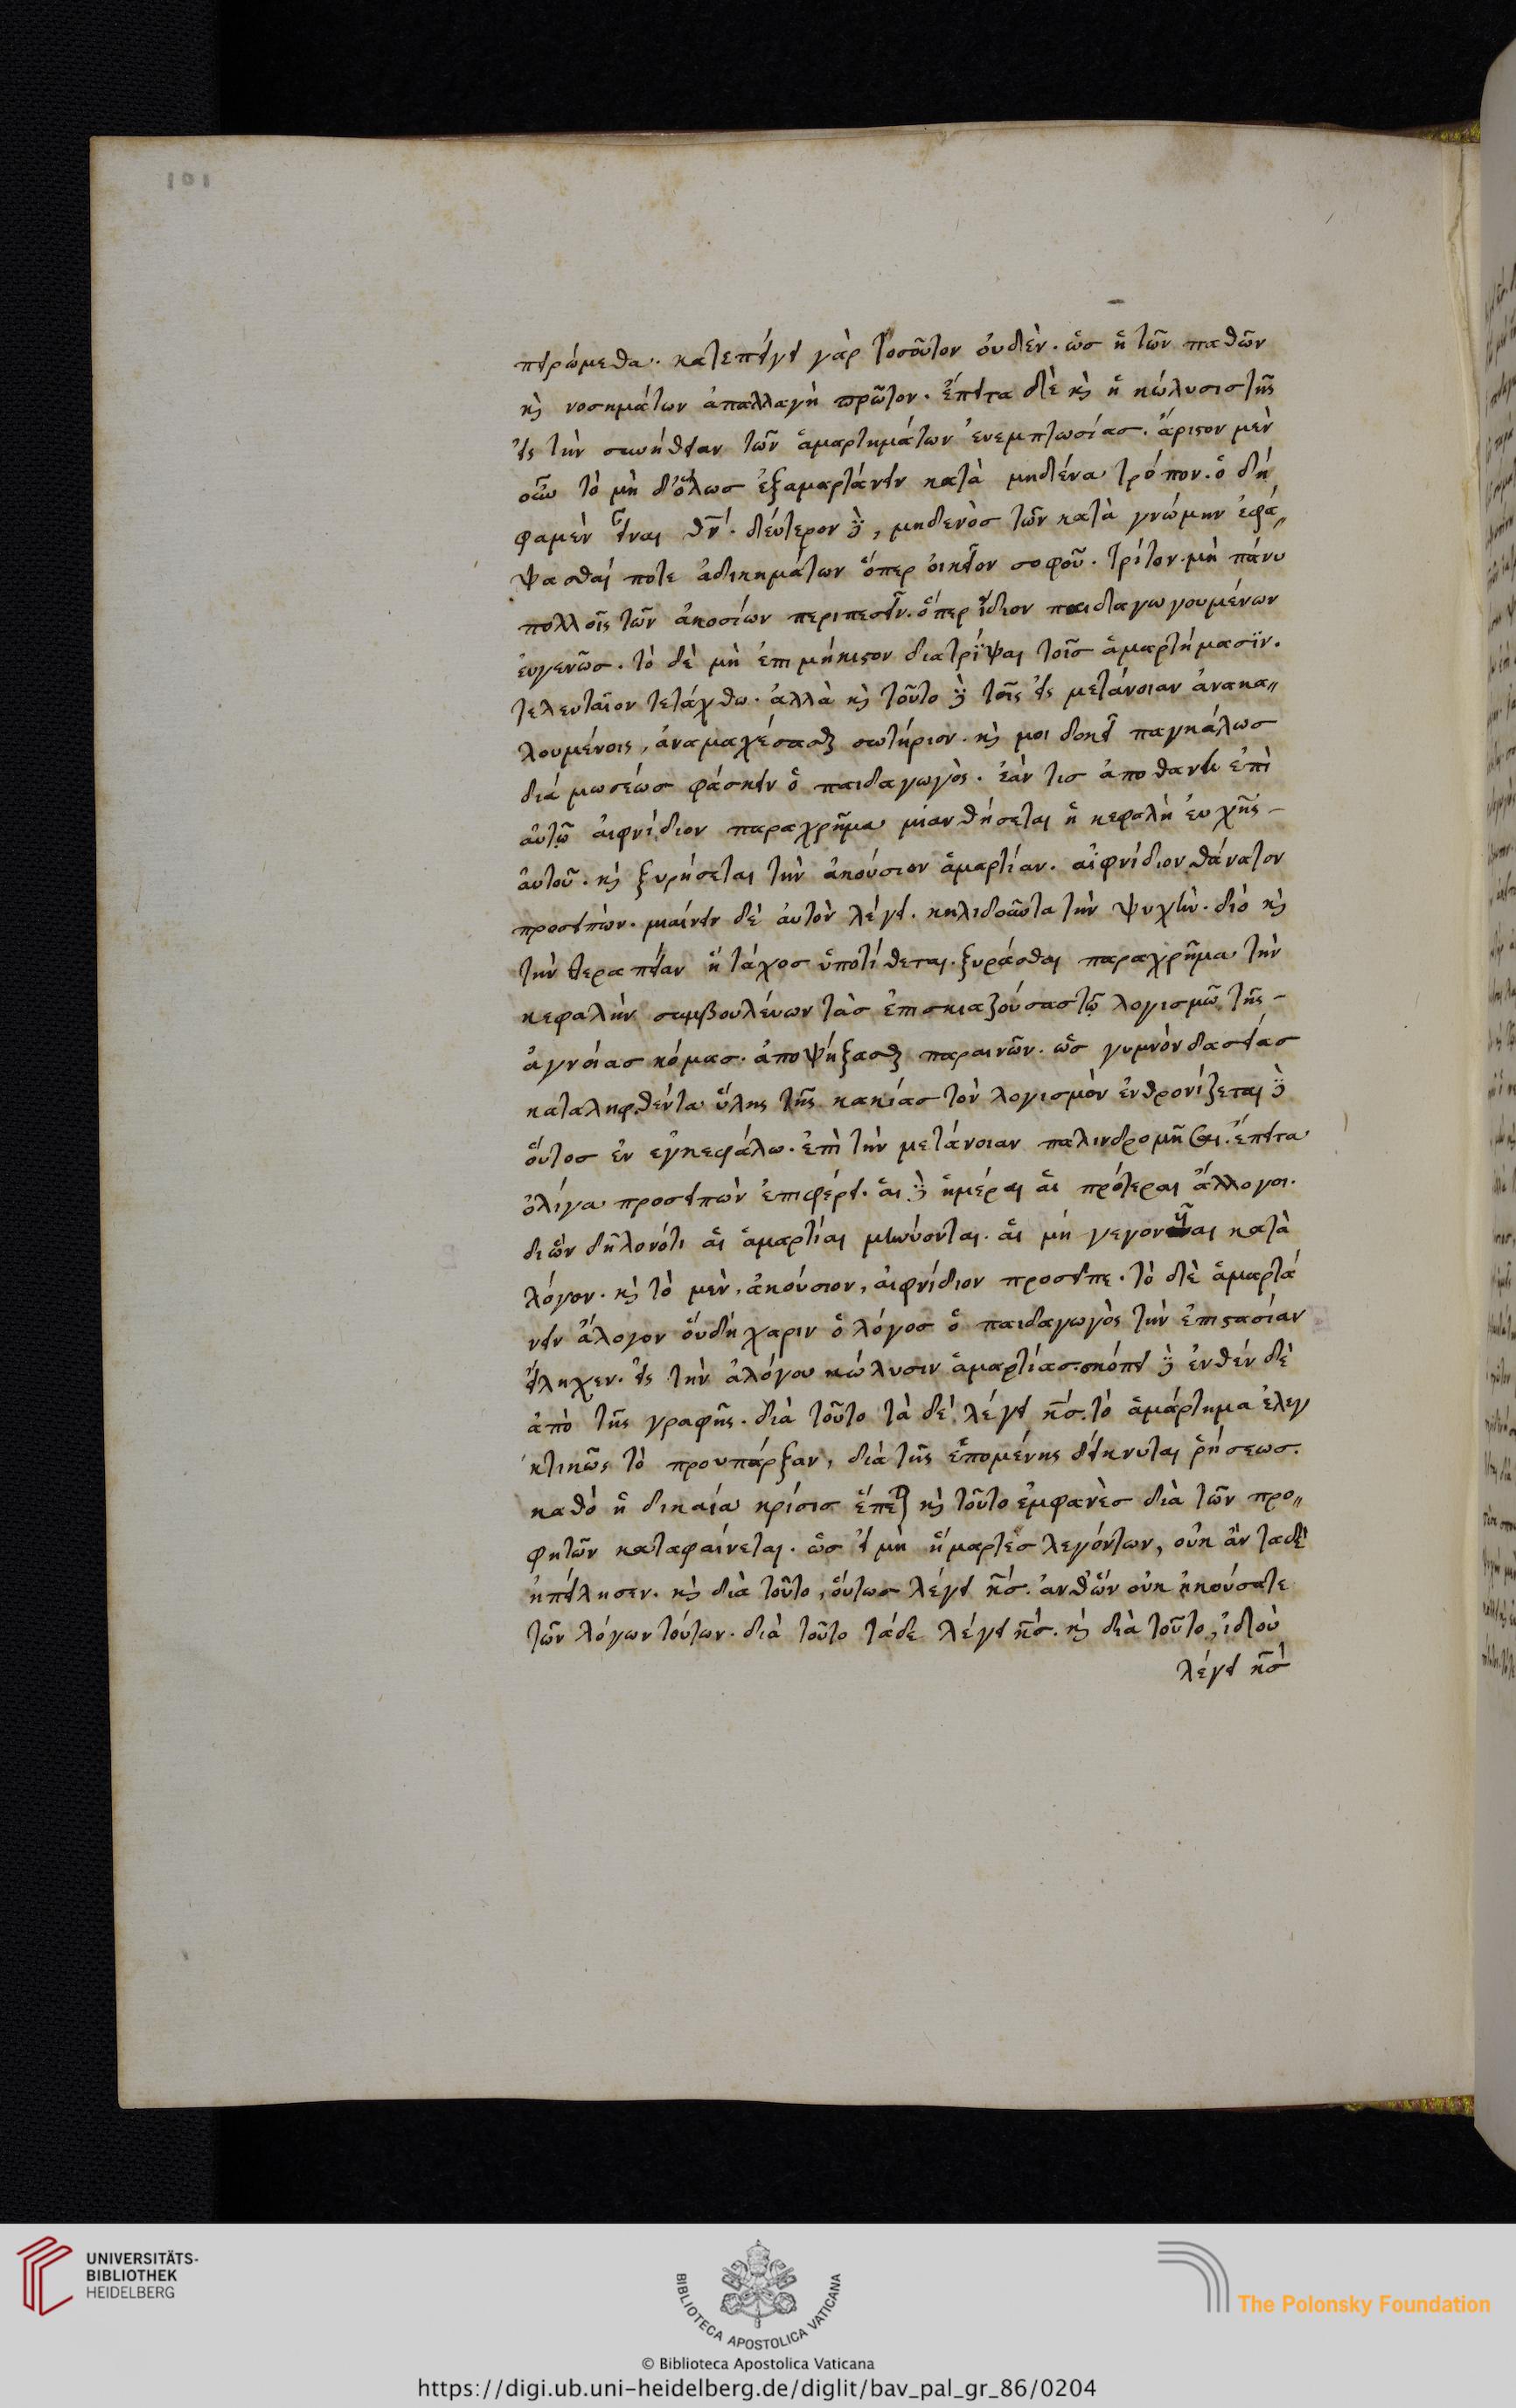 101
πειρώμεθα·· κατεπείγει γὰρ τοσοῦτον ὀυδὲν. ὥσ ἡ τῶν παθῶν
κὶ νοσημάτων ἀπαλλαγὴ πρῶτον. ἔπειτα δὲ κὶ ἡ κώλυσισ τῆς
εἰς τὴν συνήθειαν τῶν ἁμαρτημάτων ἐυεμπτωσίασ. ἄριστον μὲν
οὖν τὸ μὴ δ'ὅλωσ ἐξαμαρτάνειν κατὰ μηδένα τρόπον. ὃ δή
φαμὲν εἶναι θῦ. δεύτερον δὲ, μηδενὸσ τῶν κατὰ γνώμην ἐφά〃
ψασθαί ποτε ἀδικημάτων ὅπερ ὀικεῖον σοφοῦ. τρίτον. μὴ πάνυ
πολλοῖς τῶν ἀκοσίων περιπεσεῖν. ὅπερ ἴδιον παιδαγωγουμένων
ἐυγενῶσ. τὸ δὲ μὴ ἐπι μήκιστον διατρίψαι τοῖσ ἁμαρτήμασϊν.
τελευταῖον τετάχθω. ἀλλὰ κὶ τοῦτο δὲ τοῖς εἰς μετάνοιαν ἀνακα〃
λουμένοις, ἀναμαχέσασθαι σωτήριον. κὶ μοι δοκεῖ παγκάλωσ
διά μωσεώσ φάσκειν ὁ παιδαγωγὸς. ἐάν τισ ἀποθανῃ ἐπὶ
ἀυτῷ ἀιφνίδιον παραχρῆμα μιανθήσεται ἡ κεφαλὴ ἐυχῆς –
ἀυτοῦ. κὶ ξυρήσεται τὴν ἀκούσιον ἁμαρτίαν. αἰφνίδιον θάνατον
προσειπὼν. μιαίνειν δὲ ἀυτὸν λέγει. κηλιδοῦντα τὴν ψυχὴν. διὸ κὶ
τὴν θεραπείαν ᾗ τάχοσ ὑποτίθεται. ξυράσθαι παραχρῆμα τὴν
κεφαλὴν συμβουλεύων τὰσ ἐπισκιαζούσασ τῷ λογισμῷ τῆς –
ἀγνοίασ κόμασ. ἀποψήξασθαι παραινῶν. ὡσ γυμνὸν δασείασ
καταληφθέντα ὕλης τῆς κακίασ τὸν λογισμὸν ἐνθρονίζεται δὲ
ὅυτοσ ἐν εγκεφάλω. ἐπὶ τὴν μετάνοιαν παλινδρομῆσαι. ἔπειτα
ὀλίγα προσειπὼν ἐπιφέρει. ἁι δὲ ἡμέραι ἁι πρότεραι ἄλλογοι.
διὧν δηλονότι ἁι ἁμαρτίαι μηνύονται. ἁι μή γεγονυῖαι κατὰ
λόγον. κὶ τὸ μὲν, ἀκούσιον, ἀιφνίδιον προσεῖπε. τὸ δὲ ἁμαρτά
νειν ἄλογον ὅυδὴ χαριν ὁ λόγοσ ὁ παιδαγωγὸς τὴν ἐπιστασίαν
εἴληχεν. εἰς τὴν ἀλόγου κώλυσιν ἁμαρτίασ. σκόπει δὲ ἐνθὲν δὲ
ἀπὸ τῆς γραφῆς. διὰ τοῦτο τὰ δὲ λέγει κ̅σ̅. τὸ ἁμάρτημα ἐλεγ
κτικῶς τὸ προυπάρξαν, διὰ τῆς ἑπομένης δείκνυται ῥήσεωσ.
καθὸ ἡ δικαία κρίσισ ἕπεται κὶ τοῦτο ἐμφανὲσ διὰ τῶν προ〃
φητῶν καταφαίνεται. ὡσ εἰ μὴ ἥμαρτεσ λεγόντων, οὐκ ἂν ταδὲ
ἠπείλησεν. κὶ διὰ τοῦτο, ὅυτωσ λέγει κ̅σ̅. ἀνθ'ὧν οὐκ ἠκούσατε
τῶν λόγων τούτων. διὰ τοῦτο τάδε λέγει κ̅σ̅. κὶ διὰ τοῦτο, ἰδοὺ
λέγει κ̅σ̅
UNIVERSITÄTS-
BIBLIOTHEK
HEIDELBERG
BIBLIOTECA APOSTOLICA VATICANA
The Polonsky Foundation
© Biblioteca Apostolica Vaticana
https://digi.ub.uni-heidelberg.de/diglit/bav_pal_gr_86/0204